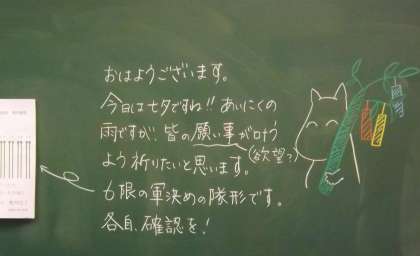 おはようございます。
今日は七夕ですね!! あいにくの
雨ですが、皆の願い事が叶う
(欲望?)
よう祈りたいと思います。
6限の軍決めの隊形です。
各自、確認を!